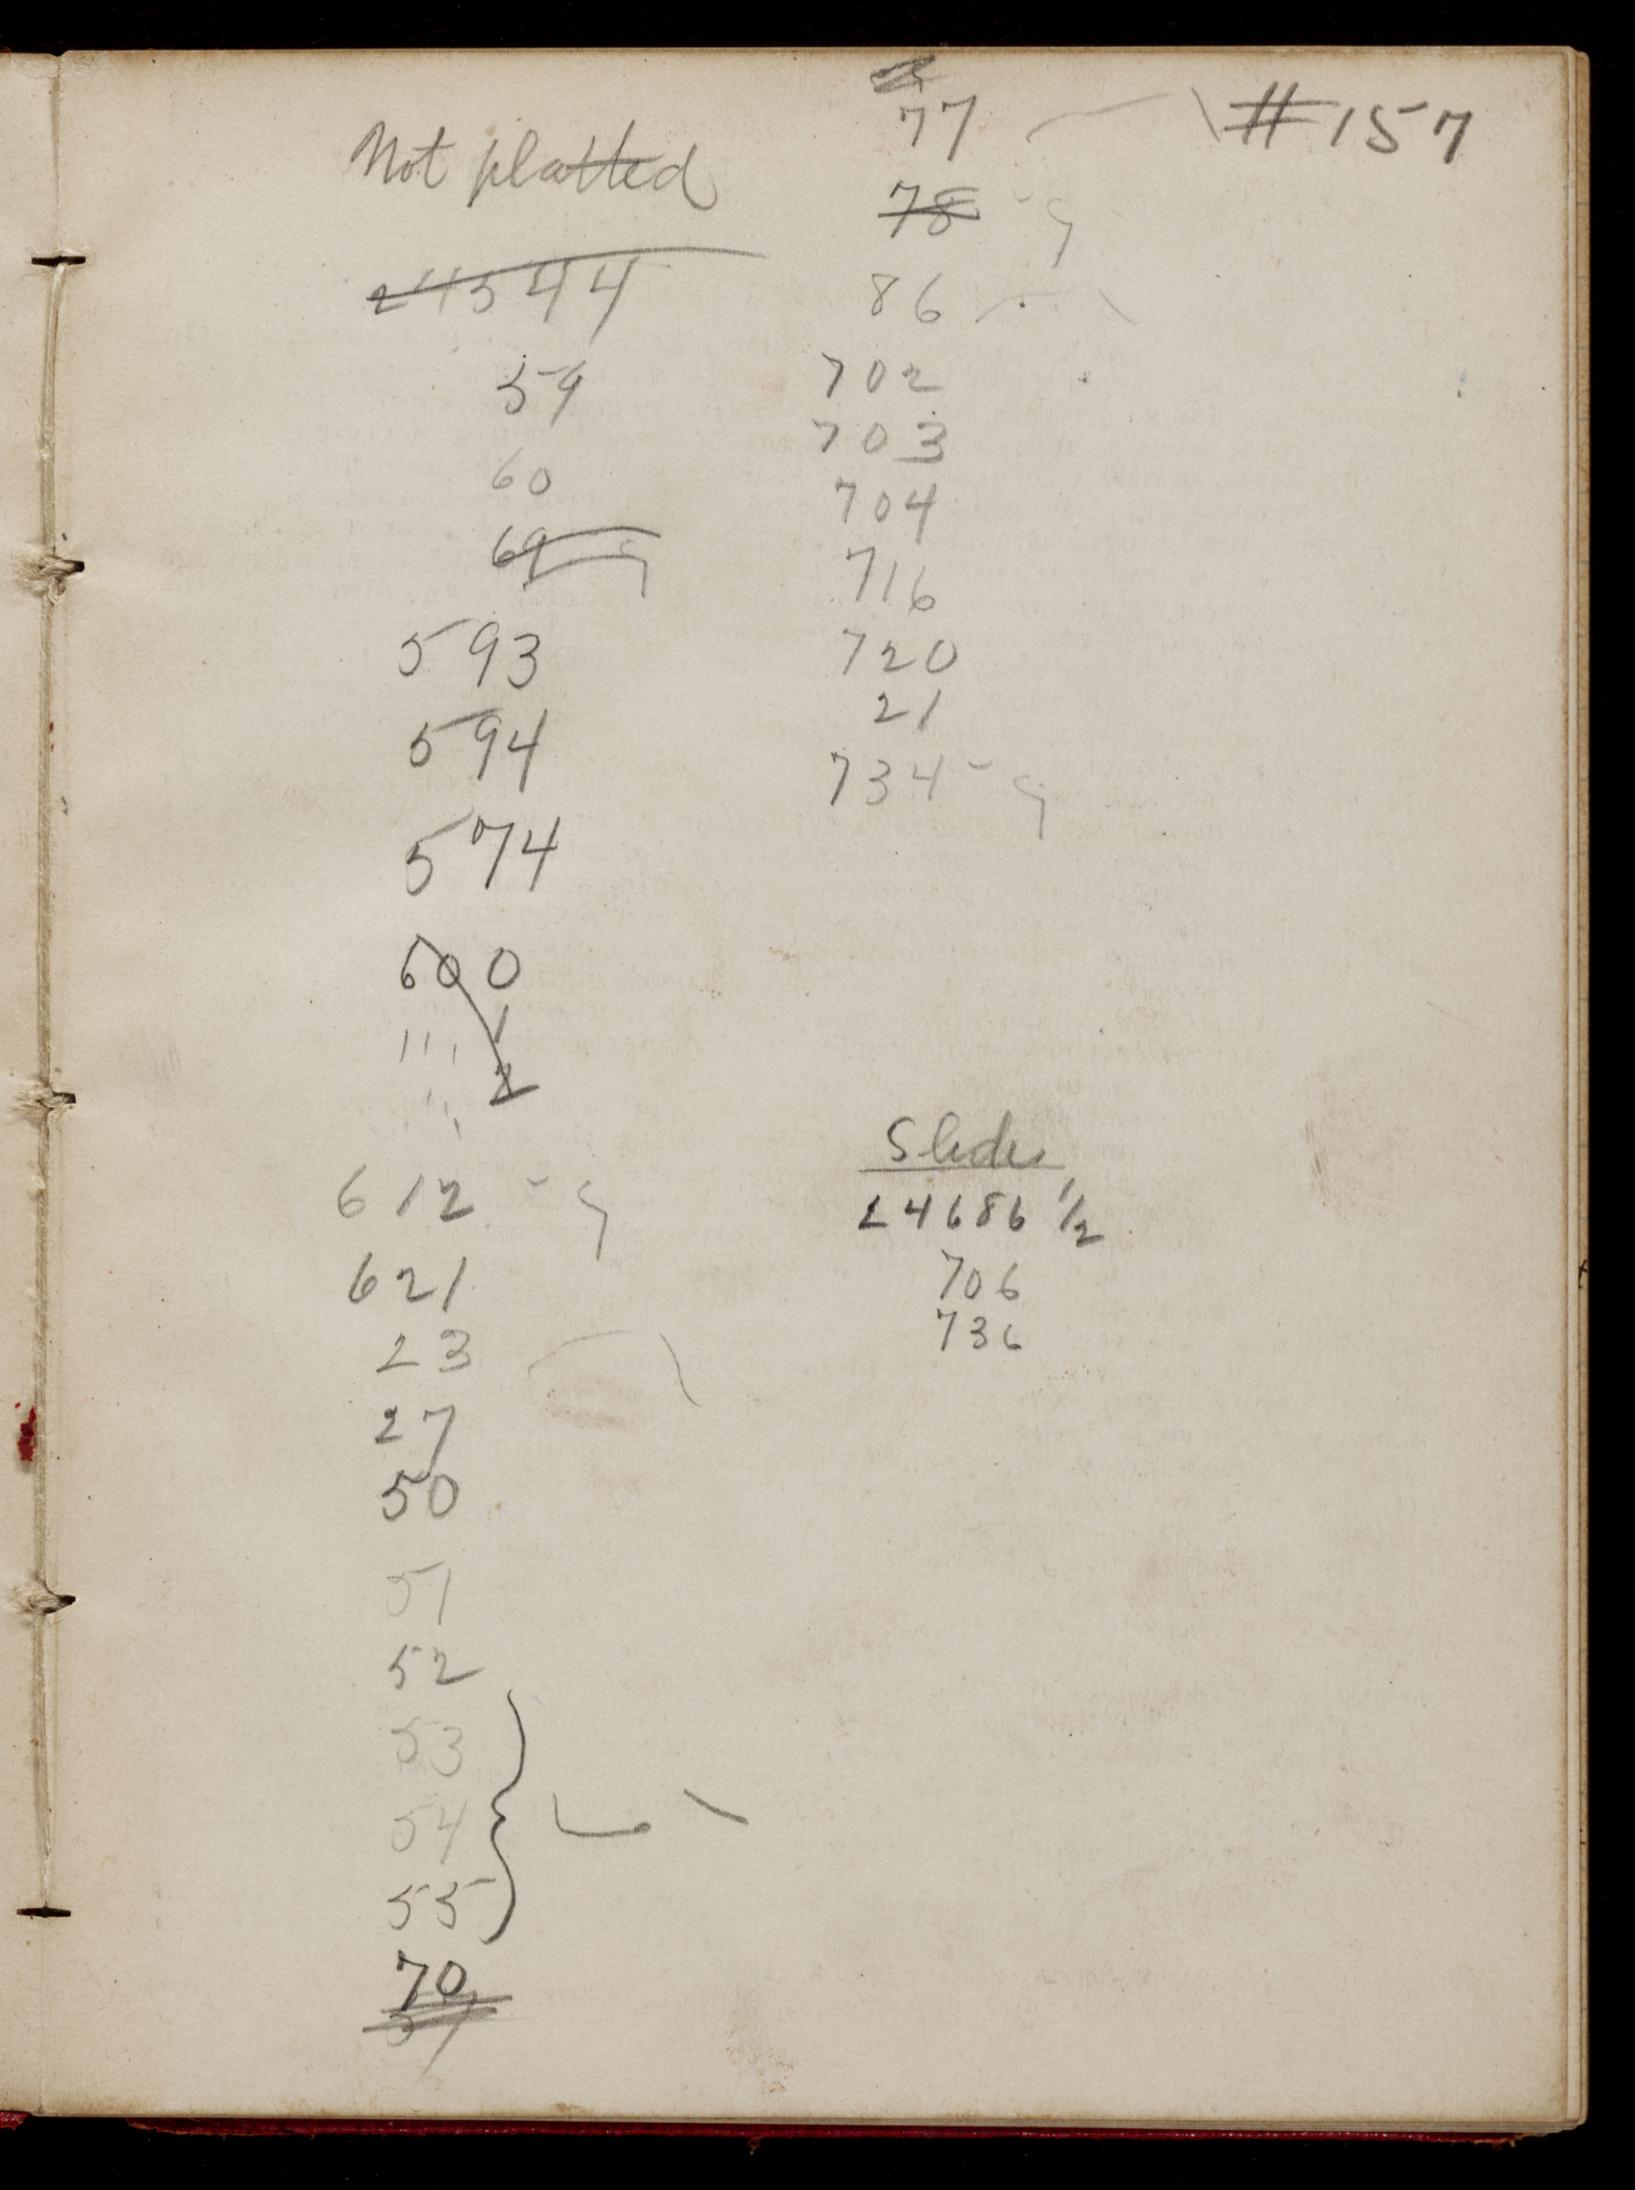 Not platted
24544
59
60
69
593
594
574
600
" 1
" 2
612 - g
621
23
27
50
51
52
53
54
55
70
57
77
78 - g
86
702
703
704
716
720
21
734 - g
#157
Slides
24686 1/2
706
736